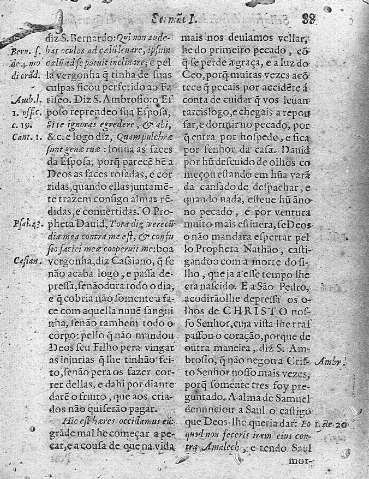 Sermão I. 88
diz S. Bernardo: Qui non aude-
bat oculos ad cælũ leuare, ipsum
de quo cælũ se potuit inclinare; e pel
la vergonha q̃ tinha de suas
culpas ficou perfeito ao Fa
riseo. Diz S. Ambrosio, o Es
poso reprendeo sua Esposa,
Si te ignoras egredere, & abi,
&c. e logo diz, Quam pulchræ
sunt genæ tuæ: louua as faces
da Esposa; porq̃ parece bẽ a
Deos as faces rosadas, e cor
ridas, quando ellas juntamẽ-
te trazem consigo almas rẽ-
didas, e conuertidas. O Pro-
pheta Dauid, Tota die verecũ
dia mea contra me est, & confu
sio faciei meæ cooperuit me: boa
vergonha, diz Cassiano, q̃ se
não acaba logo, e passa de-
pressa, senão dura todo o dia,
e q̃ cobria não somente a fa-
ce com aquella nuuẽ sangui
nha, senão tambem todo o
corpo: pello q̃ não mandou
Deos seu Filho pera vingar
as injurias q̃ lhe tinhão fei-
to, senão pera os fazer cor-
rer dellas, e dahi por diante
darẽ o fruito, que aos, cria-
dos não quiserão pagar.
Hic est hæres occidamus eũ:
grãde mal he começar a pe-
car, e a cousa de que na vida
Bern. s.
de 4. mo
di orãd.
Amb. l.
1. offic.
c. 19.
Cant. 1.
Psal. 43.
Cassian.
mais nos deuiamos vellar,
he do primeiro pecado, cõ
q̃ se perde a graça, e a luz do
Ceo, porq̃ muitas vezes acõ
tece q̃ pecais por accidẽte á
conta de cuidar q̃ vos leuan
tareis logo, e chegais a repou
sar, e dormir no pecado, por
q̃ entra por hospede, e fica
por senhor da casa. Dauid
por hũ descuido de olhos co
meçou estando em hũa varã
da cansado de despachar, e
quando nada, esteue hũ ãno
no pecado, e por ventura
muito mais estiuera, se Deos
o não mandara espertar pel
lo Propheta Nathão, casti-
gandoo com a morte do si-
lho, que ja a este tempo lhe
era nascido. E a São Pedro,
acodirãolhe depressa os o-
lhos de CHRISTO nosso
Senhor, cuja vista lhe tras
passou o coração, porque de
outra maneira, diz S. Am-
brosio, q̃ não negara Cris-
to Senhor nosso mais vezes,
porq̃ somente tres foy pre-
guntado. A alma de Samuel
denunciou a Saul o castigo
que Deos lhe queria dar: Eo
quod non feceris iram eius con-
tra Amalech, e tendo Saul
mor-
Ambr.
1. Reg. 20